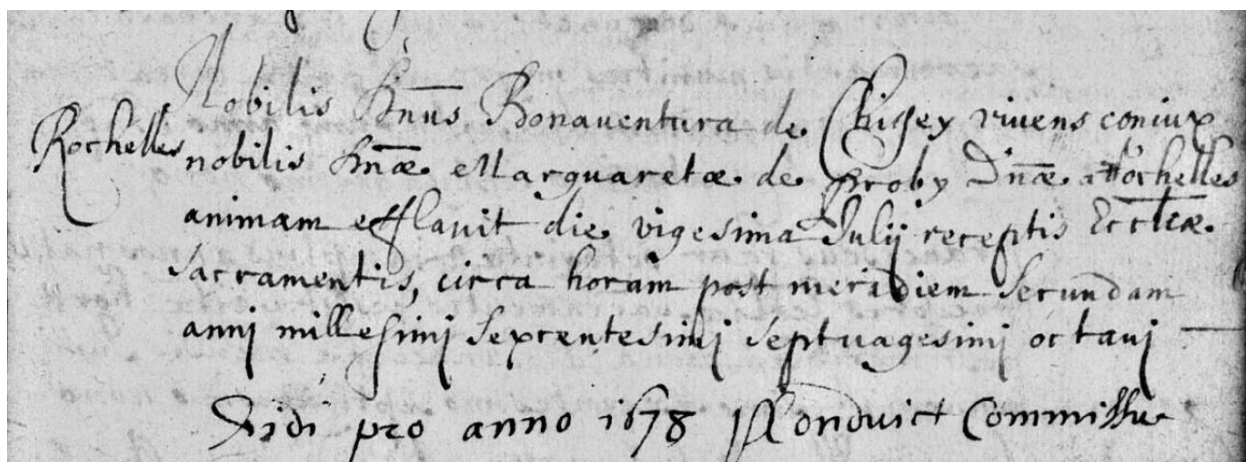 Nobilis Dnus Bonaventura de Chisey vivens coniux
Rochelles nobilis Dnæ Marguaretæ de Proby Dnæ a Rochelles
animam efflavit die vigesima Julij receptis Eccleæ
sacramentis, circa horam post meridiem secundam
anni millesimi sexcentesimi septuagesimi octavi
Vidi pro anno 1678